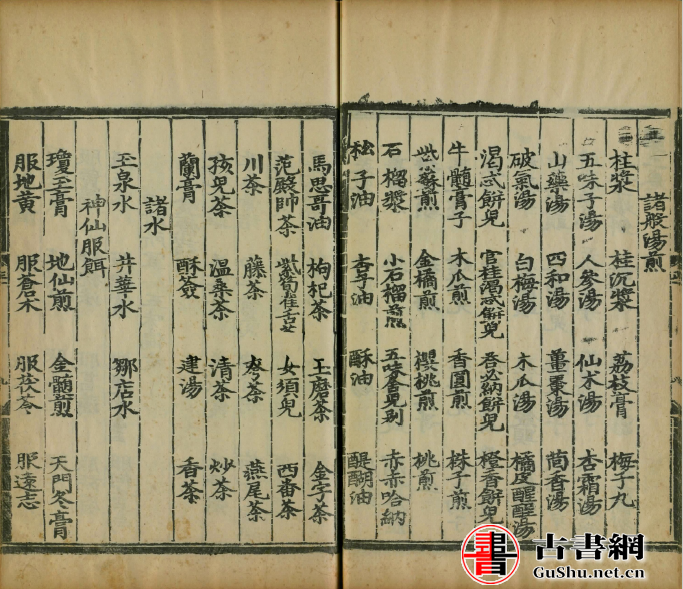 諸般湯煎
桂漿 桂沉漿 荔枝膏 梅子丸
五味子湯 人參湯 仙术湯 杏霜湯
山藥湯 四和湯 薑棗湯 茴香湯
破氣湯 白梅湯 木瓜湯 橘皮醒酲湯
渴忒餅兒 官桂渴忒餅兒 荅必納餅兒 橙香餅兒
牛髓膏子 木瓜煎 香圓煎 株子煎
紫蘇煎 金橘煎 櫻桃煎 桃煎
石榴漿 小石榴煎 五味舍兒別 赤赤哈納
松子油 杏子油 酥油 醍醐油
馬思哥油 枸杞茶 玉磨茶 金字茶
范殿帥茶 紫筍雀舌茶 女須兒 西番茶
川茶 藤茶 燕尾茶
孩兒茶 溫桑茶 清茶 炒茶
蘭膏 酥簽 建湯 香茶
諸水
玉泉水 井華水 鄒店水
神仙服餌
瓊玉膏 地仙煎 金髓煎 天門冬膏
服地黃 服蒼术 服茯苓 服遠志
書 古書網
GuShu.net.cn